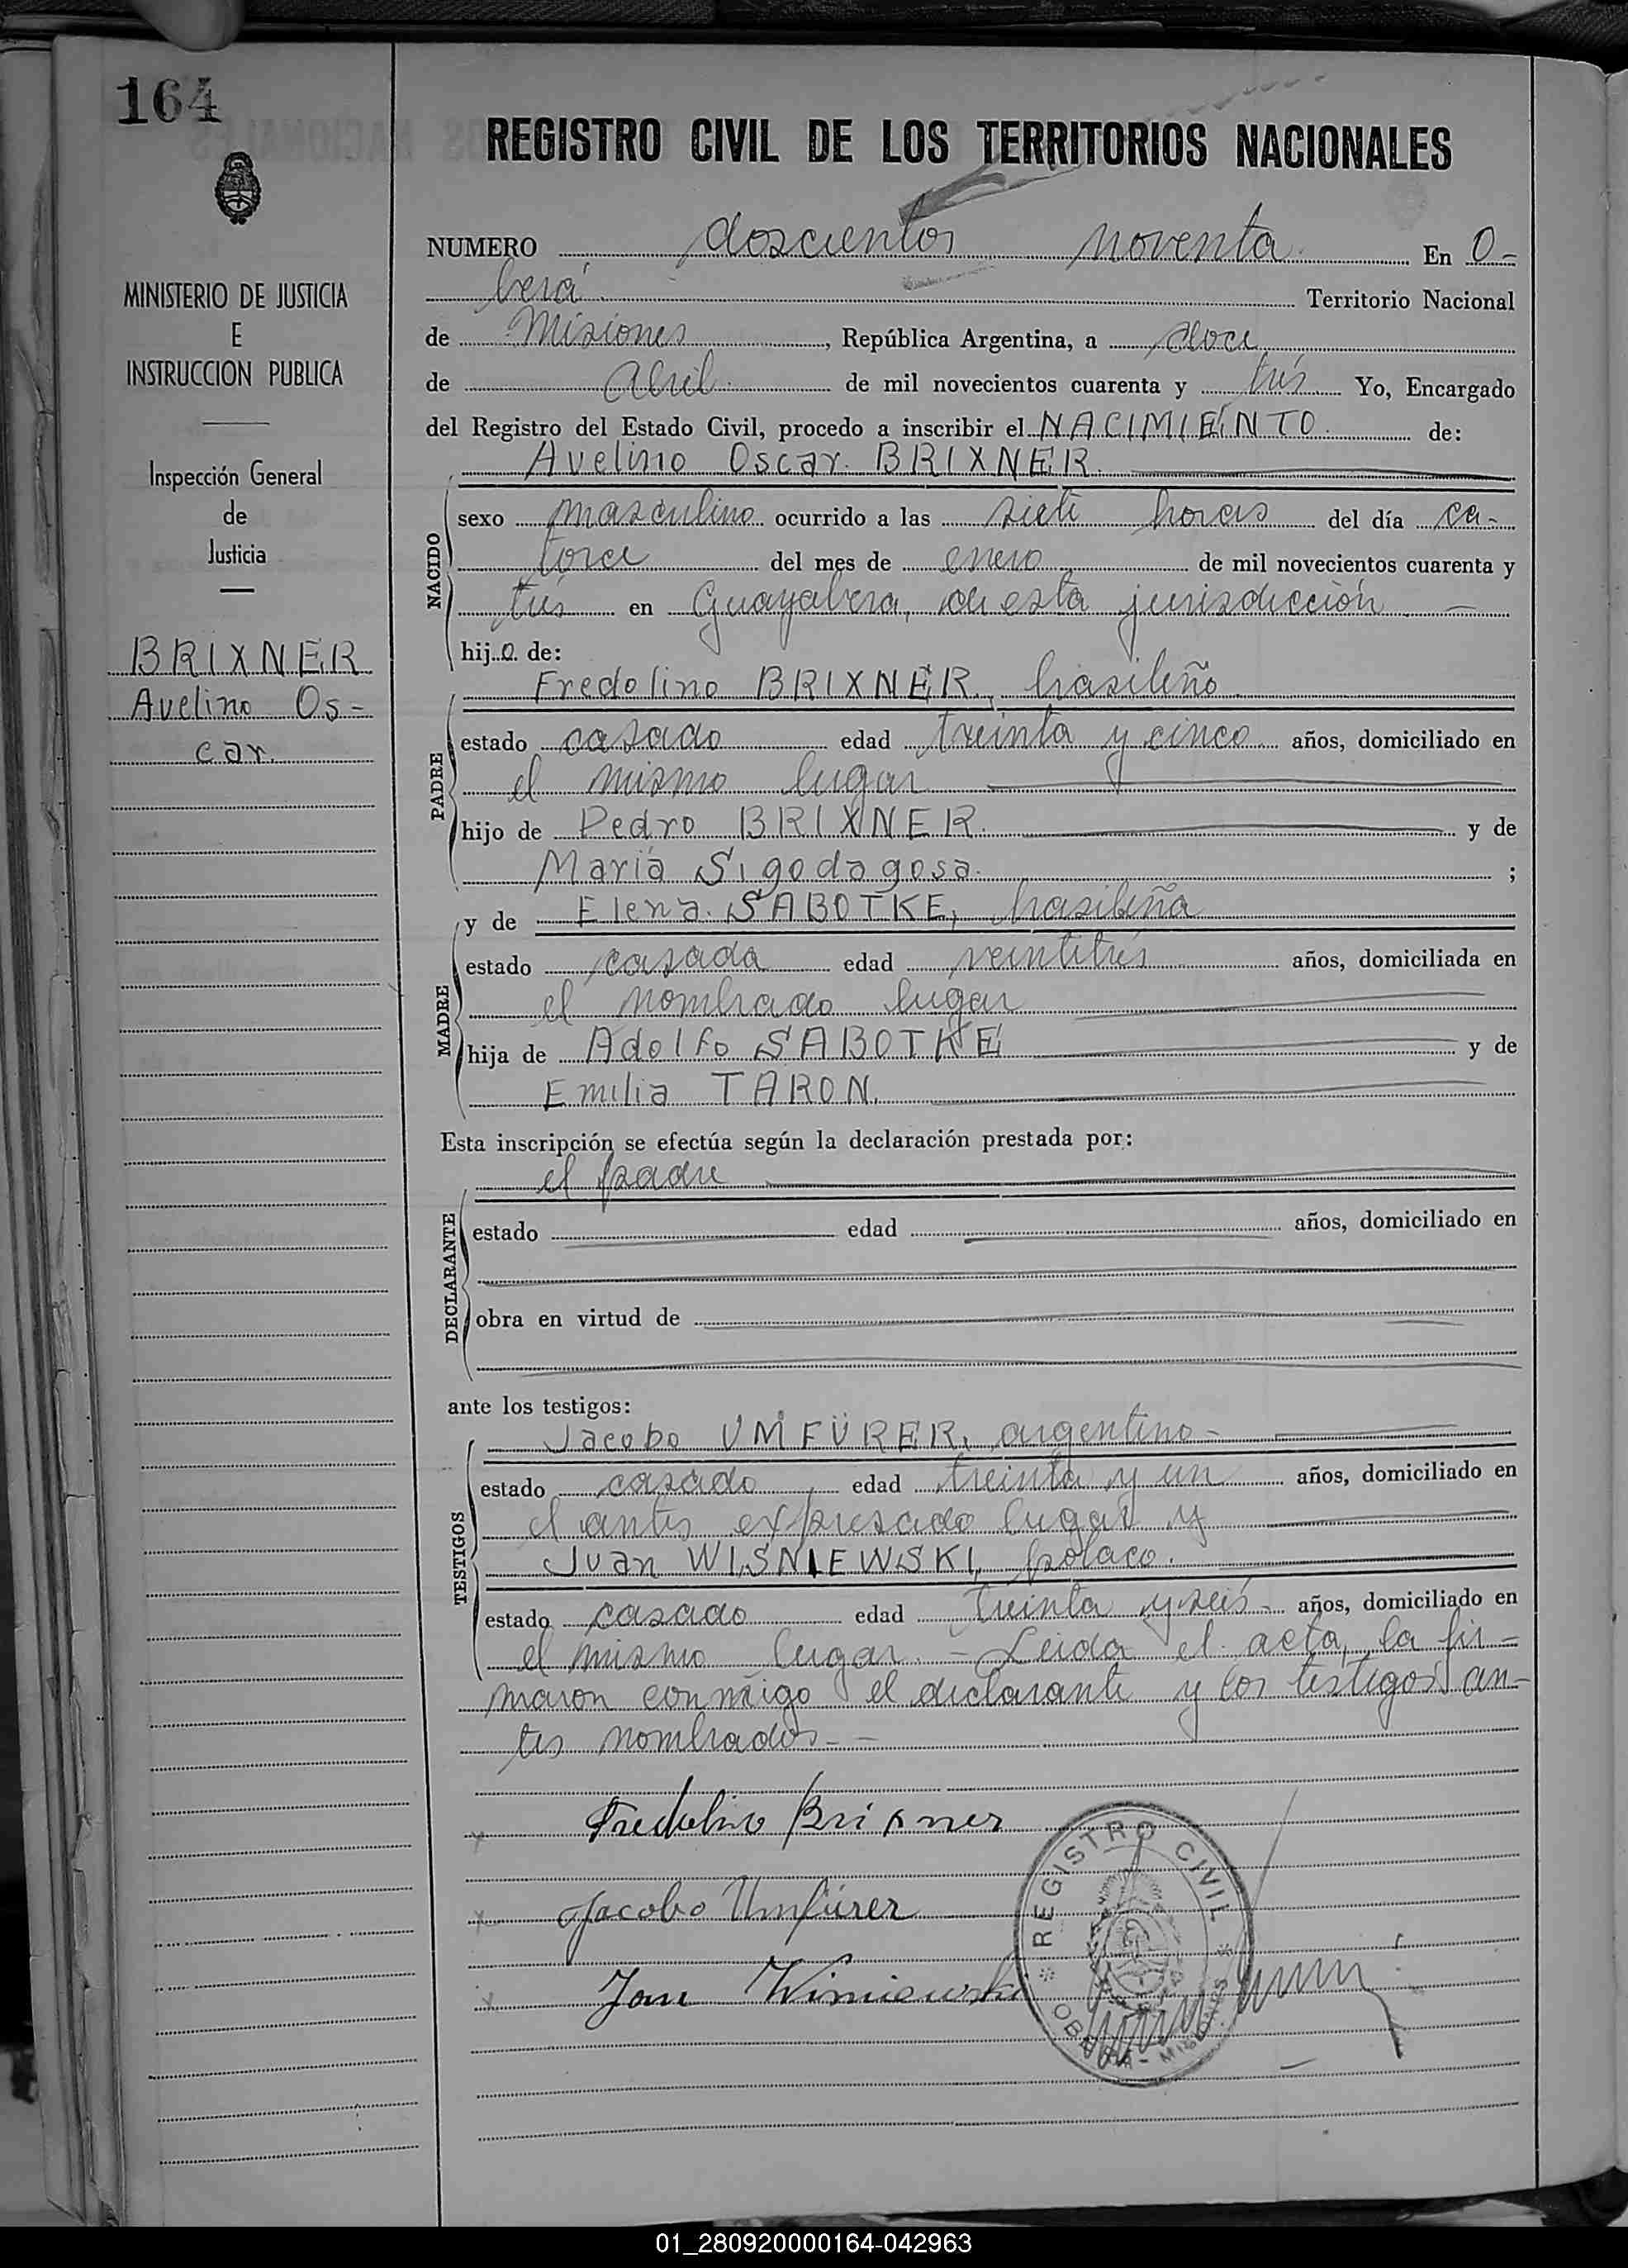 164
REGISTRO CIVIL DE LOS TERRITORIOS NACIONALES
MINISTERIO DE JUSTICIA
E
INSTRUCCION PUBLICA
Inspección General
de
Justicia
BRIXNER
Avelino Os-
car.
NUMERO doscientos noventa En O-
berá. Territorio Nacional
de Misiones, República Argentina, a doce
de Abril de mil novecientos cuarenta y tres Yo, Encargado
del Registro del Estado Civil, procedo a inscribir el NACIMIENTO de:
Avelino Oscar BRIXNER.
NACIDO
sexo masculino ocurrido a las siete horas del día ca-
torce del mes de enero de mil novecientos cuarenta y
tres en Guayabera, de esta jurisdicción
hijo de:
PADRE
Fredolino BRIXNER, brasileño
estado casado edad treinta y cinco años, domiciliado en
el mismo lugar
hijo de Pedro BRIXNER. y de
María Sigodagosa. ;
MADRE
y de Elena SABOTKE, brasileña
estado casada edad veintitrés años, domiciliada en
el nombrado lugar
hija de Adolfo SABOTKE y de
Emilia TARON.
Esta inscripción se efectúa según la declaración prestada por:
DECLARANTE
el padre
estado edad años, domiciliado en
obra en virtud de
ante los testigos:
TESTIGOS
Jacobo UMFÜRER, argentino-
estado casado edad treinta y un años, domiciliado en
el antes expresado lugar y
Juan WISNIEWSKI, polaco.
estado casado edad treinta y seis- años, domiciliado en
el mismo lugar.- Leida el acta, la fir-
maron conmigo el declarante y los testigos an-
tes nombrados-
Fredolino Brixner
Jacobo Umfürer
Jan Wisniewski
REGISTRO CIVIL
OBERA - MISIONES
01_280920000164-042963